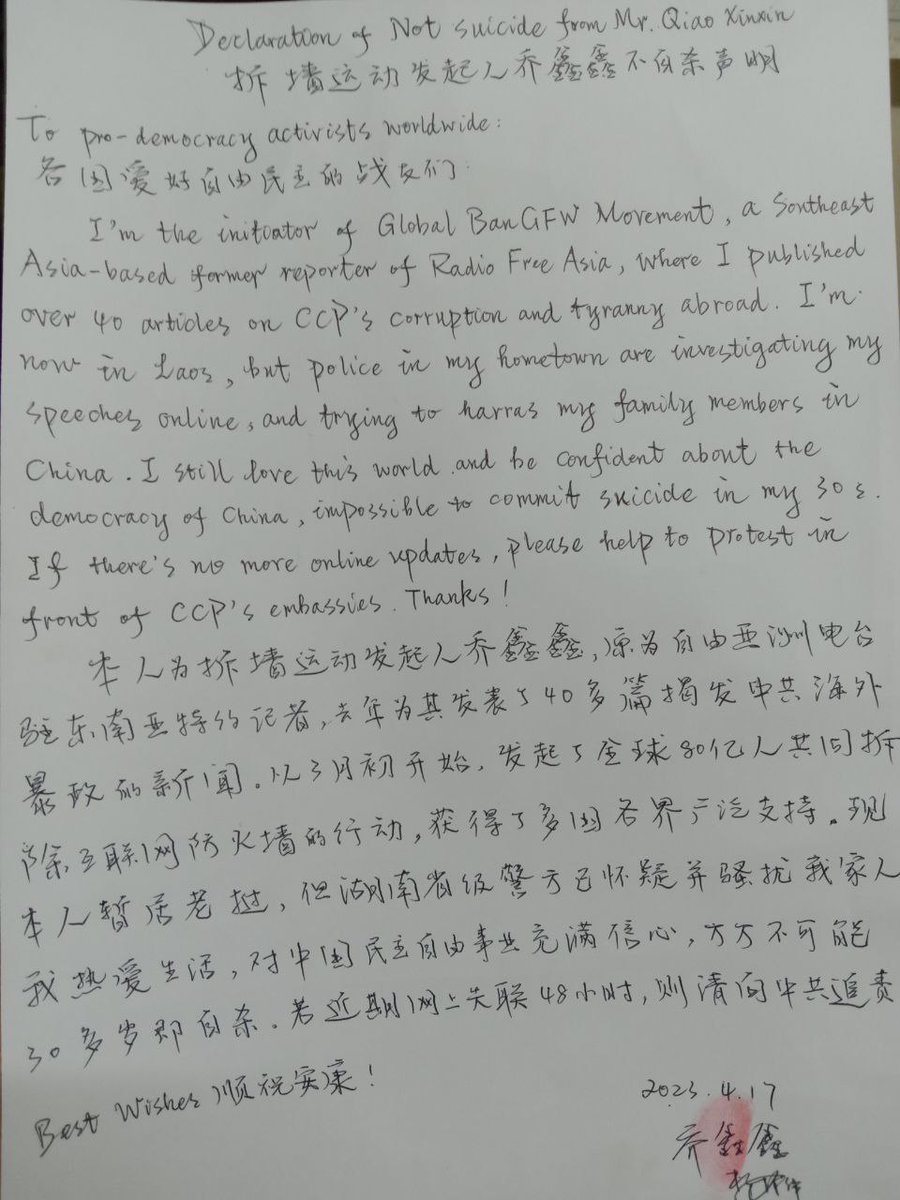 Declaration of Not suicide from Mr. Qiao Xinxin
拆墙运动发起人乔鑫鑫不自杀声明
To pro-democracy activists worldwide:
各国爱好自由民主的战友们:
I'm the initiator of Global BanGFW Movement, a Southeast
Asia-based former reporter of Radio Free Asia, where I published
over 40 articles on CCP's corruption and tyranny abroad. I'm
now in Laos, but police in my hometown are investigating my
speeches online, and trying to harras my family members in
China. I still love this world and be confident about the
democracy of China, impossible to commit suicide in my 30s.
If there's no more online updates, please help to protest in
front of CCP's embassies. Thanks!
本人为拆墙运动发起人乔鑫鑫,原为自由亚洲电台
驻东南亚特约记者,去年为其发表了40多篇揭发中共海外
暴政的新闻。从3月初开始,发起了全球80亿人共同拆
除互联网防火墙的行动,获得了多国各界广泛支持。现
本人暂居老挝,但湖南省级警方已怀疑并骚扰我家人
我热爱生活,对中国民主自由事业充满信心,万万不可能
30多岁即自杀。若近期网上失联48小时,则请向中共追责
Best Wishes 顺祝安康!
2023.4.17
乔鑫鑫